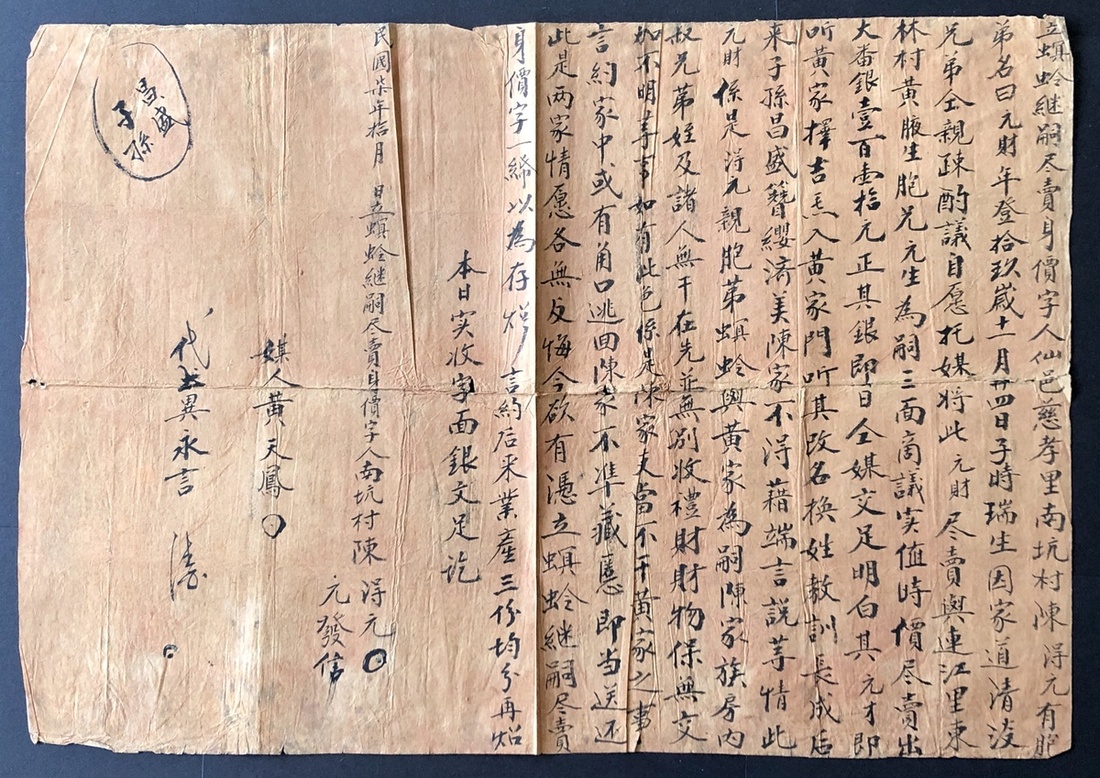 立螟蛉継嗣尽賣身價字人仙邑慈孝里南坑村陳得元有胞
弟名曰元財年登拾玖歲十一月廿四日子時瑞生因家道清淡
兄弟仝親疎酌議自愿托媒將此元財尽賣與連江里東
林村黃腋生胞兄元生為嗣三面商議实值時價尽賣出
大番銀壹百壹拾元正其銀即日仝媒交足明白其元才即
听黃家擇吉 入黃家門听其改名換姓教訓長成后
来子孫昌盛簪纓济美陳家不得藉端言説等情此
元財係是得元親胞弟螟蛉與黃家為嗣陳家族房内
叔兄弟姪及諸人無干在先並無別收禮財財物保無交
加不明等事如有此色係是陳家支當不干黃家之事
言約家中或有角口逃回陳家不準藏慝即当送还
此是両家情愿各無反悔今欲有憑立螟蛉継嗣尽賣
身價字一紙以為存炤 言約后来業產三份均分再炤
本日实收字面銀交足訖
民國柒年拾月 日立螟蛉継嗣尽賣身價字人南坑村陳得元
元發信
媒人黃天鳳
代 異永言
昌盛
子孫